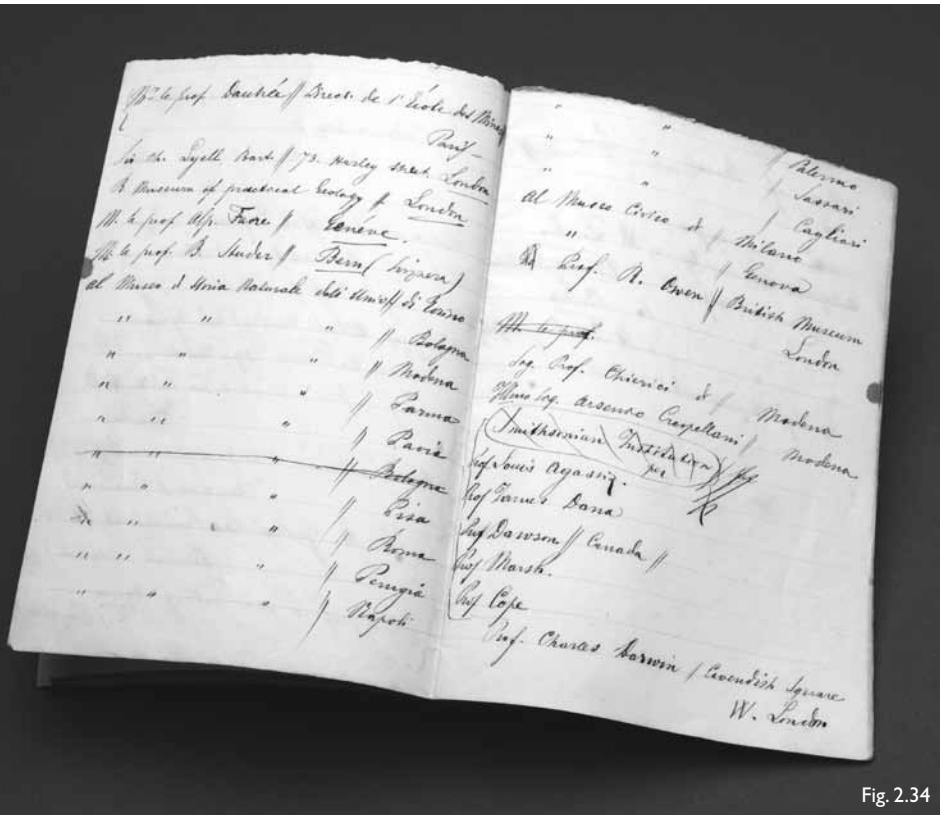 Mr le prof. Daubrée // Direct. de l'École des Mines
Paris
Sir Ch. Lyell, Bart. // 73. Harley street London
B. Museum of practical Geology // London
M. le prof. Alp. Favre // Genève.
M. le prof. B. Studer // Bern (Svizzera)
Al Museo d Storia Naturale dell' Univ. // di Torino
" " " // Bologna
" " " // Modena
" " " // Parma
" " " // Pavia
" " " // Bologna
" " " // Pisa
" " " // Roma
" " " // Perugia
" " " / Napoli
" " / Palermo
" " / Sassari
" " / Cagliari
Al Museo Civico d / Milano
" // Genova
Prof. R. Owen // British Museum
London
M. le prof.
Sig. Prof. Chierici d / Modena
Illmo Sig. Arsenio Crespellani / Modena
Smithsonian Institution
per
Prof Louis Agassiz.
Prof James Dana
Prof Dawson // Canada //
Prof Marsh.
Prof Cope
Prof. Charles Darwin / Cavendish Square
W. London
Fig. 2.34